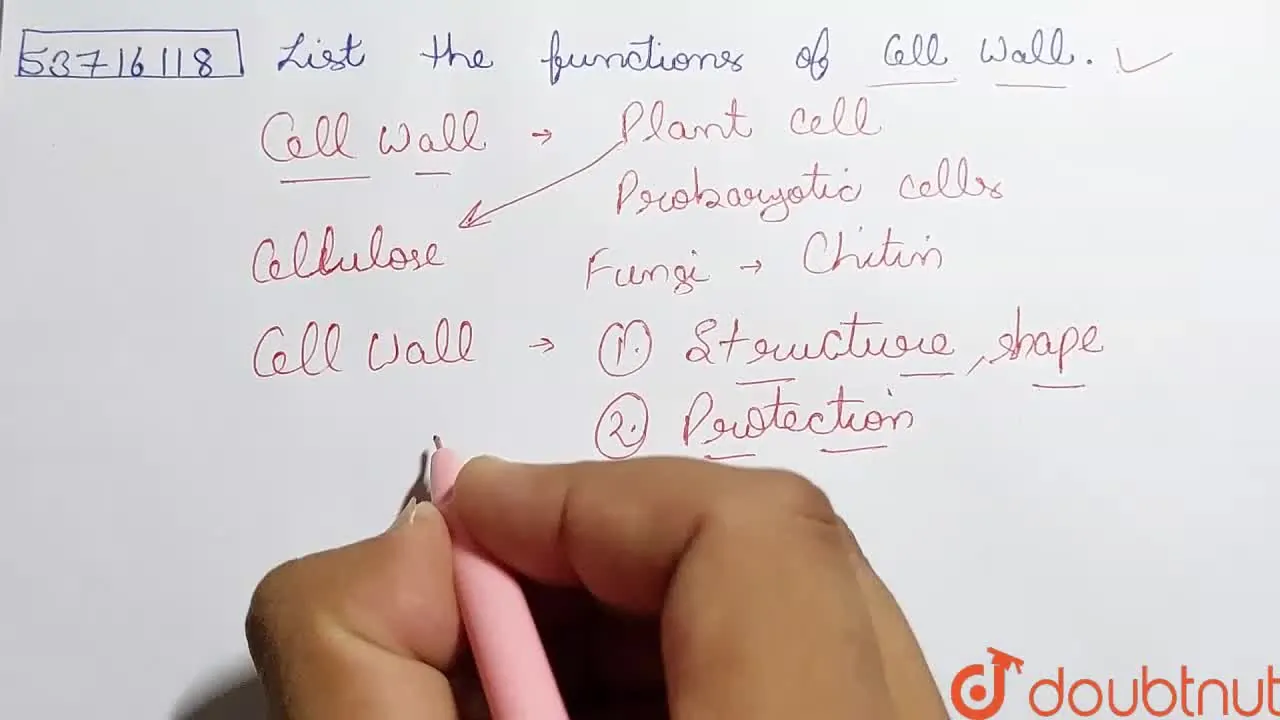 53716118 List the functions of Cell Wall.
Cell Wall → Plant cell
Prokaryotic cells
Cellulose
Fungi → Chitin
Cell Wall → 1. Structure, shape
2. Protection
doubtnut